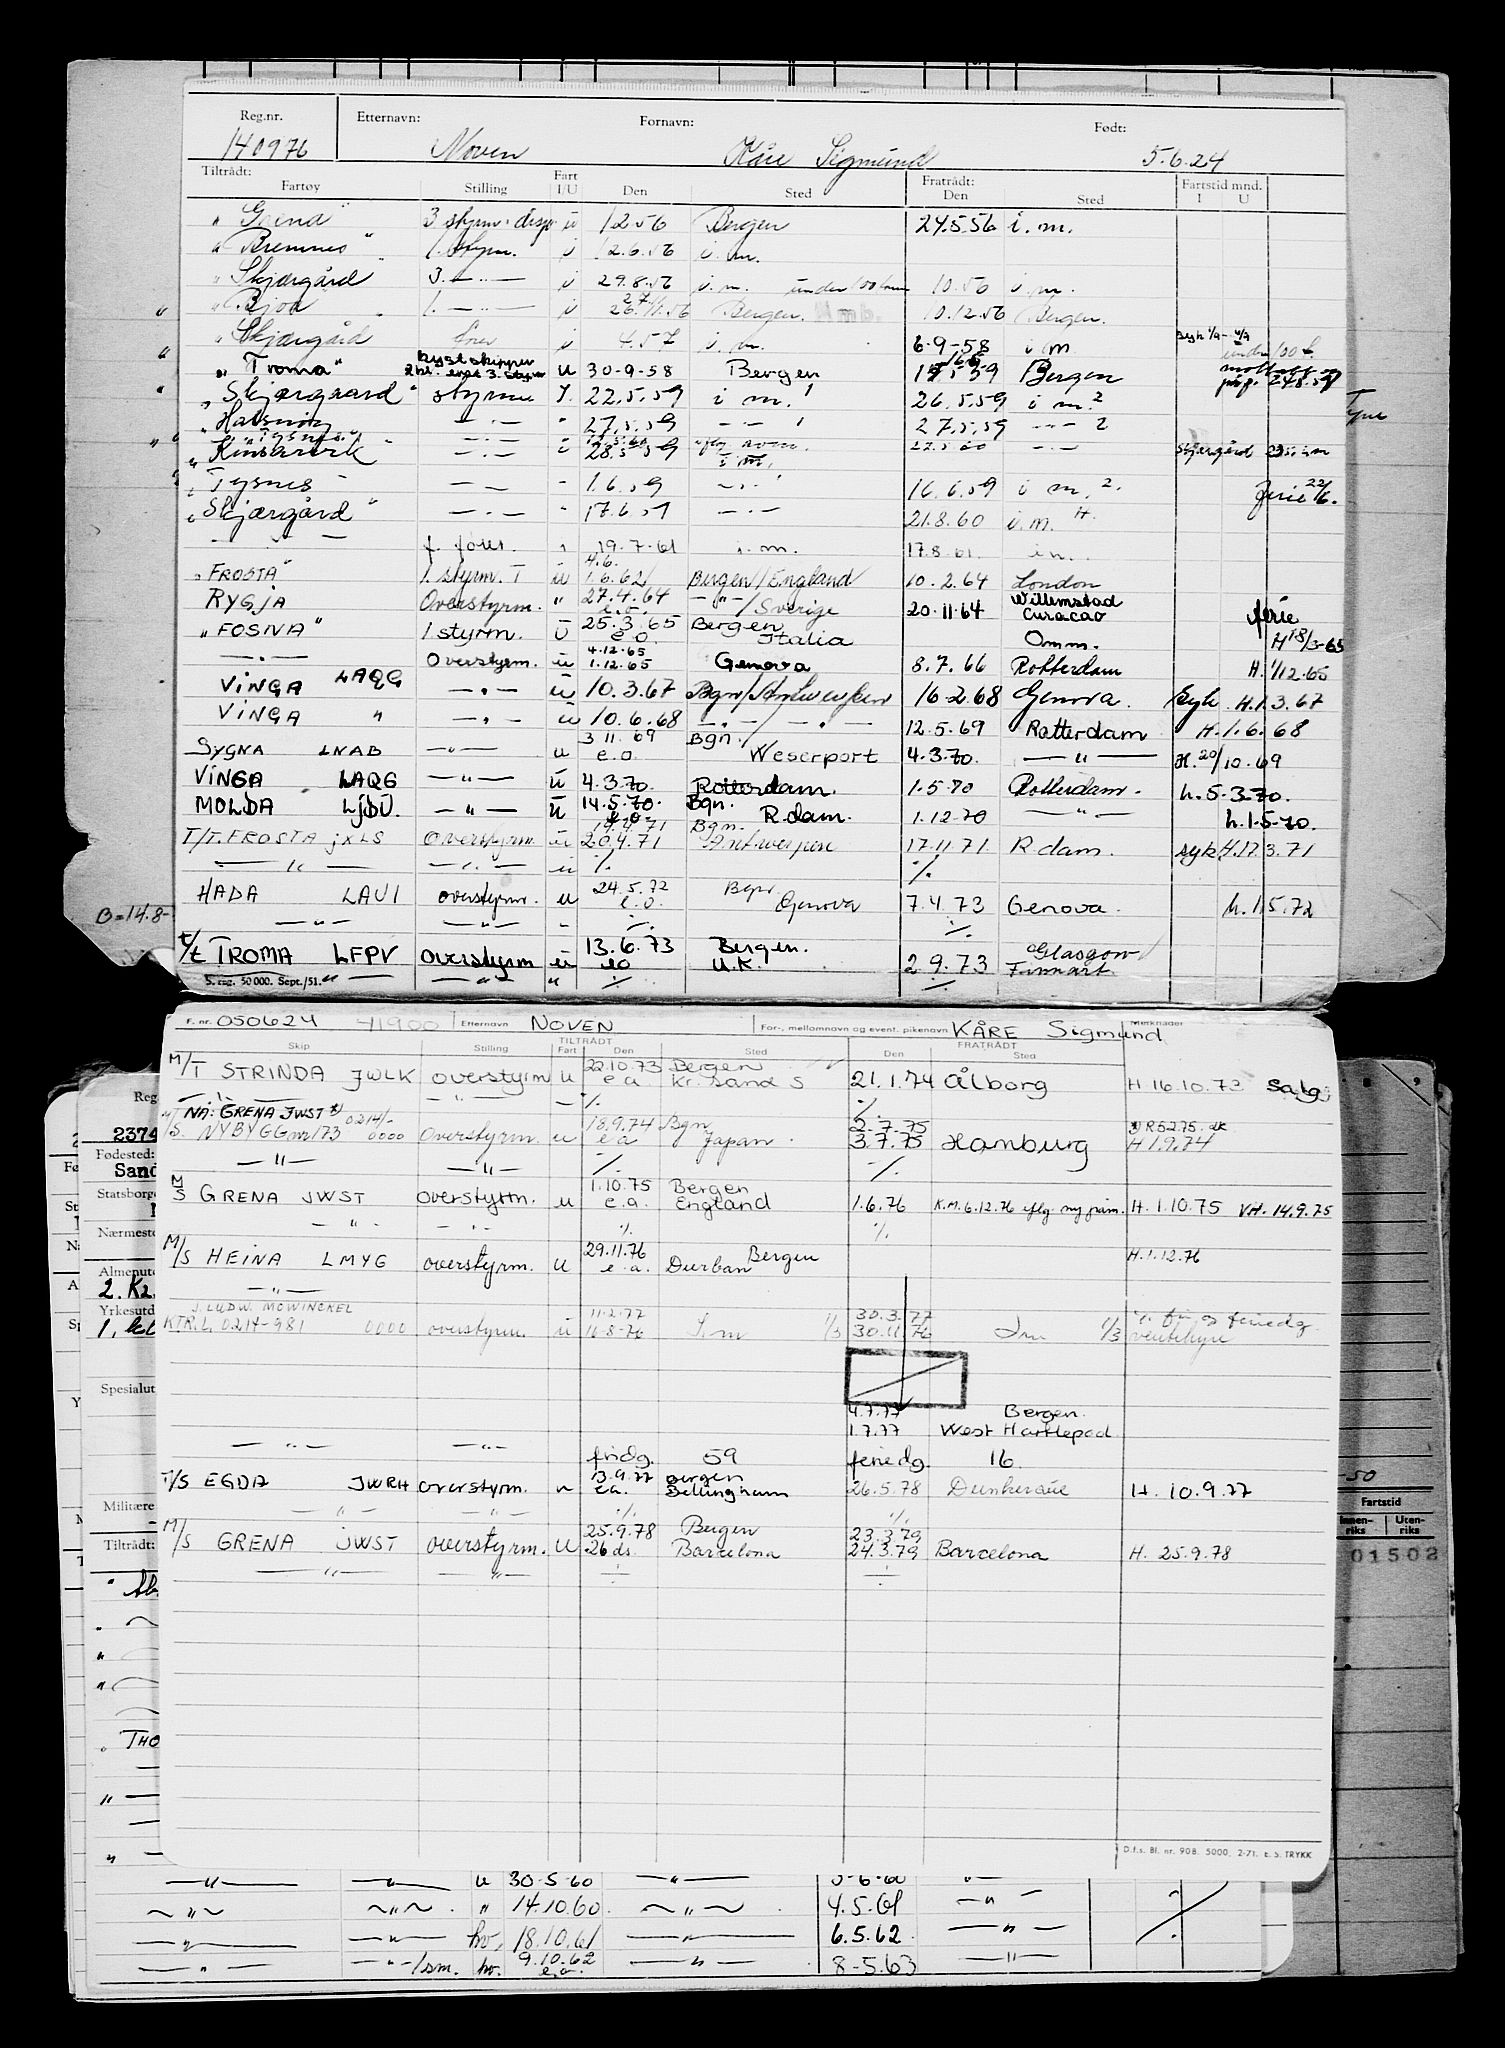 Reg.nr. Etternavn: Fornavn: Født:
140976 Noven Kåre Sigmund 5.6.24
Tiltrådt: Fart Fratrådt: Fartstid mnd.
Fartøy Stilling I/U Den Sted Den Sted I U
" Grend " 3 styrm. disp ü 1.2.56 Bergen 24.5.56 i.m.
" Bremnes " 1. styrm. i 12.6.56 i.m.
" Skjærgård 3. — " — i 29.8.56 i.m. under 100 10.56 i.m.
1. — " — i 26.11.56 Bergen. 10.12.56 Bergen.
" Skjærgård fører i 4.57 i.m. 6-9-58 i m
" Troma " kystskipper u 30-9-58 Bergen 59 Bergen
" Skjærgaard " styrm I. 22.5.59 i m. 1 26.5.59 i m. 2
" Halsnøy — " — " 27.5.59 — " — 1 27.5.59 — " — 2
" Kinsarvik — " — 28.5.59 i m. 22.5.60 — " —
" Tysnes — " — " 1.6.59 — " — 1 16.6.59 i m. 2. ferie 22/6.
" Skjærgård " — " — " 17.6.59 — " — 21.8.60 i.m. H.
f. fører. " 19.7.61 i.m. 17.8.61
4.6.
" FROSTA " 1. styrm. I ü 1.6.62 Bergen/England 10.2.64 London
RYGJA Overstyrm. " 27.4.64 e.o. — " — /Sverige 20.11.64 Willemstad Curacao ferie
" FOSNA " 1 styrm. Ü 25.3.65 e.o. Bergen Italia Omm. H 18/3-65
— " — Overstyrm. ü 4.12.65 1.12.65 Genova 8.7.66 Rotterdam H. 1/12.65
VINGA LAQG — " — ü 10.3.67 Bgn/Antwerpen 16.2.68 Genova. syk H.1.3.67
VINGA " — " — ü 10.6.68 — " — / — " — 12.5.69 Rotterdam H.1.6.68
SYGNA LNAB — " — u 3 11.69 e.o. Bgn. Weserport 4.3.70. — " — H.20/10.69
VINGA LAQG — " — ü 4.3.70. Rotterdam. 1.5.70 Rotterdam. h.5.3.70.
MOLDA LJDU. — " — ü 14.5.70. Bgn. R.dam. 1.12.70 — " — h.1.5.70.
14.4.71 Bgn.
T/T. FROSTA JXLS overstyrm ü 20.4.71 Antwerpen 17.11.71 R dam. syk H.17.3.71
— " — — " — ü ./. ./.
HADA LAUI overstyrm. u 24.5.72 e.o. Bgn. Genova 7.4.73 Genova. h.1.5.72
B=14.8-
— " — — " — - ./. ./.
t/t TROMA LFPV overstyrm ü 13.6.73 eo Bergen. U.K. 2 9.73 Glasgow/ Finnart.
S. reg. 50 000. Sept./51. " — " — " ./. ./.
F. nr. 050624 41900 Etternavn NOVEN For-, mellomnavn og event. pikenavn KÅRE Sigmund Merknader
TILTRÅDT FRATRÅDT
Skip Stilling Fart Den Sted Den Sted
M/T STRINDA JWLK overstyrm u 22.10.73 e a Bergen Kr. sand S 21.1.74 Ålborg H 16.10.73 Salg
— " — — " — ./. ./.
NA: GRENA JWST x) 0214/- 18.9.74 Bgn 2.7.75 x) R 5.2.75.
NYBYGG nr 173 0000 Overstyrm. u e a Japan. 3.7.75 Hamburg H 1.9.74
— " — — " — ./. ./.
M/S GRENA JWST overstyrm. u 1.10.75 e.a. Bergen England 1.6.76 K.M. 6.12.76 H. 1.10.75 VH. 14.9.75
— " — — " — ./. ./.
M/S HEINA LMYG overstyrm. u 29.11.76 e.a. Bergen Durban H.1.12.76
— " —
J. LUDW. MOWINCKEL 11.2.77 30.3.77
KTR.L. 0214-981 0000 overstyrm. ü 16-8-76 I.m 1/3 30.11.76 I m 1/3 ventehyre
4.7.77 Bergen.
1.7.77 West Hartlepool
— " — — " — fridg. 59 feriedg. 16
T/S EGDA JWRH overstyrm. u 13.9.77 e.a. Bergen Bellingham 26.5.78 Dunkerque H. 10.9.77
— " — — " — ./. ./.
M/S GRENA JWST overstyrm. U 25.9.78 26 ds. Bergen Barcelona 23.3.79 24.3.79 Barcelona H. 25.9.78
— " — — " — ./. ./.
D.f.s. Bl. nr. 90B. 5000, 2-71. E. S. TRYKK
Reg
2374
Fødested:
Sand
Statsborge
Nærmeste
Almenutd
2. Kl.
Yrkesutd
Spesialut
Militære
Tiltrådt:
THO
8 9
-50
Fartstid
Innenriks Utenriks
01502
— " — — " — u 30-5-60 — " —
— " — — " — " 14.10.60. — " — 4.5.61 — " —
— " — — " — hv. 18.10.61 — " — 6.5.62 — " —
— " — — " — /sm. hv. 9.10.62 e.o. — " — 8-5.63 — " —